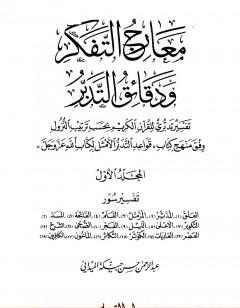 معارج التفكر
ودقائق التدبر
تفسير تدبري للقرآن الكريم بحسب ترتيب النزول
وفق منهج كتاب «قواعد التدبر الأمثل لكتاب الله عز وجل»
المجلد الأول
تفسير سور
العلق (١) المدثر (٢) المزمل (٣) القلم (٤) الفاتحة (٥) المسد (٦)
التكوير (٧) الأعلى (٨) الليل (٩) الفجر (١٠) الضحى (١١) الشرح (١٢)
العصر (١٣) العاديات (١٤) الكوثر (١٥) التكاثر (١٦) الماعون (١٧) الكافرون (١٨)
عبد الرحمن حسن حبنكة الميداني